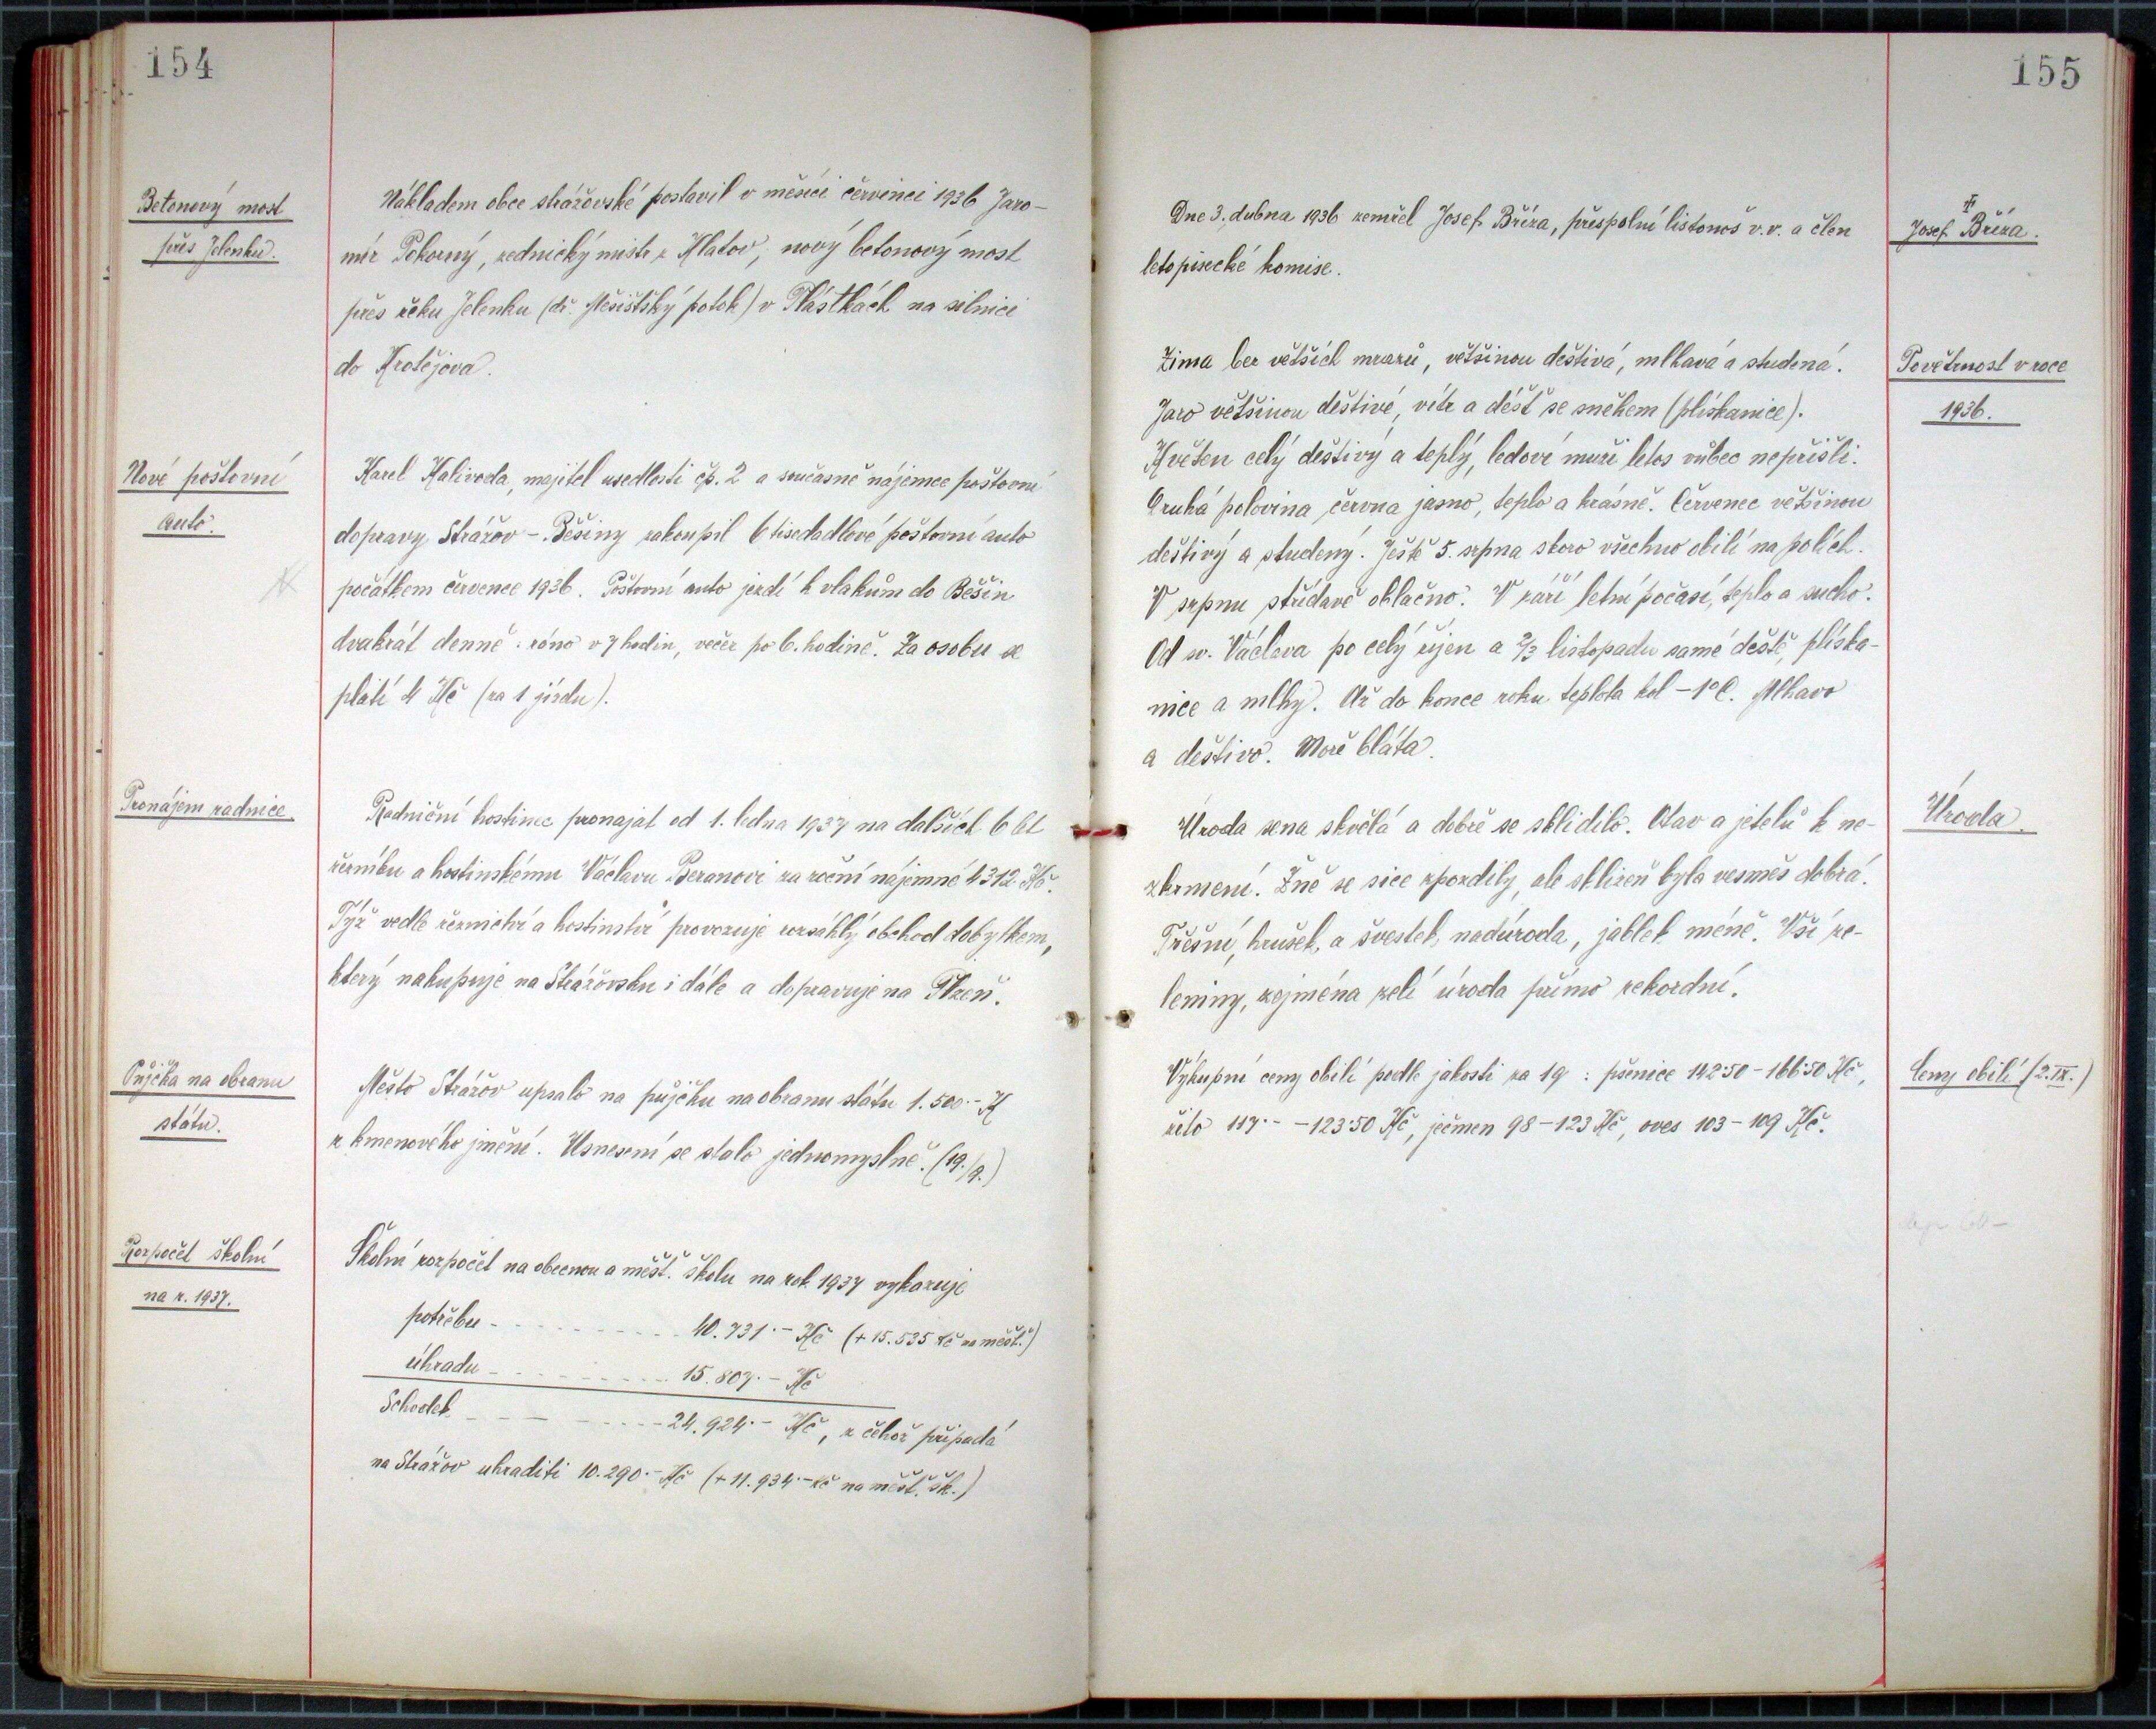 154
Betonový most
přes Jelenku.
Nákladem obce strážovské postavil v měsíci červenci 1936 Jaro-
mír Pokorný, zednický mistr z Klatov, nový betonový most
přes řeku Jelenku (dř. Měšištský potok) v Plástkách na silnici
do Krotějova.
Nové poštovní
auto.
Karel Kalivoda, majitel usedlosti čp. 2 a současně nájemce poštovní
dopravy Strážov - Běšiny zakoupil 6tisedadlové poštovní auto
počátkem července 1936. Poštovní auto jezdí k vlakům do Běšin
dvakrát denně: ráno v 7 hodin, večer po 6. hodině. Za osobu se
platí 4 Kč (za 1 jízdu).
Pronájem radnice.
Radniční hostinec pronajat od 1. ledna 1937 na dalších 6 let
řezníku a hostinskému Václavu Beranovi za roční nájemné 4312 Kč.
Týž vedle řeznictví a hostinství provozuje rozsáhlý obchod dobytkem,
který nakupuje na Strážovsku i dále a dopravuje na Plzeň.
Půjčka na obranu
státu.
Město Strážov upsalo na půjčku na obranu státu 1.500.- K
z kmenového jmění. Usnesení se stalo jednomyslně. (19./9.)
Rozpočet školní
na r. 1937.
Školní rozpočet na obecnou a měšť. školu na rok 1937 vykazuje
potřebu - - - - - - - - - - 40.731.- Kč (+ 15.535 Kč na měšť.)
úhradu - - - - - - - - - - 15.807.- Kč
Schodek - - - - - - - - 24.924.- Kč, z čehož připadá
na Strážov uhraditi 10.290.- Kč (+ 11.934.- Kč na měšť. šk.)
155
Dne 3. dubna 1936 zemřel Josef Bříza, přespolní listonoš v.v. a člen
letopisecké komise.
Josef Bříza.
Zima bez větších mrazů, většinou deštivá, mlhavá a studená.
Jaro většinou deštivé, vítr a déšť se sněhem (plískanice).
Květen celý deštivý a teplý, ledoví muži letos vůbec nepřišli.
Druhá polovina června jasno, teplo a krásně. Červenec většinou
deštivý a studený. Ještě 5. srpna skoro všechno obilí na polích.
V srpnu střídavě oblačno. V září letní počasí, teplo a sucho.
Od sv. Václava po celý říjen a 2/3 listopadu samé deště, plíska-
nice a mlhy. Až do konce roku teplota kol -1°C. Mlhavo
a deštivo. Moře bláta.
Povětrnost v roce
1936.
Úroda sena skvělá a dobře se sklidilo. Otav a jetelů k ne-
zkrmení. Žně se sice zpozdily, ale sklizeň byla vesměs dobrá.
Třešní, hrušek, a švestek nadúroda, jablek méně. Vší ze-
leniny, zejména zelí úroda přímo rekordní.
Úroda.
Výkupní ceny obilí podle jakosti za 1q: pšenice 142.50 - 166.50 Kč,
žito 117.- - 123.50 Kč, ječmen 98 - 123 Kč, oves 103 - 109 Kč.
Ceny obilí (2.IX.)